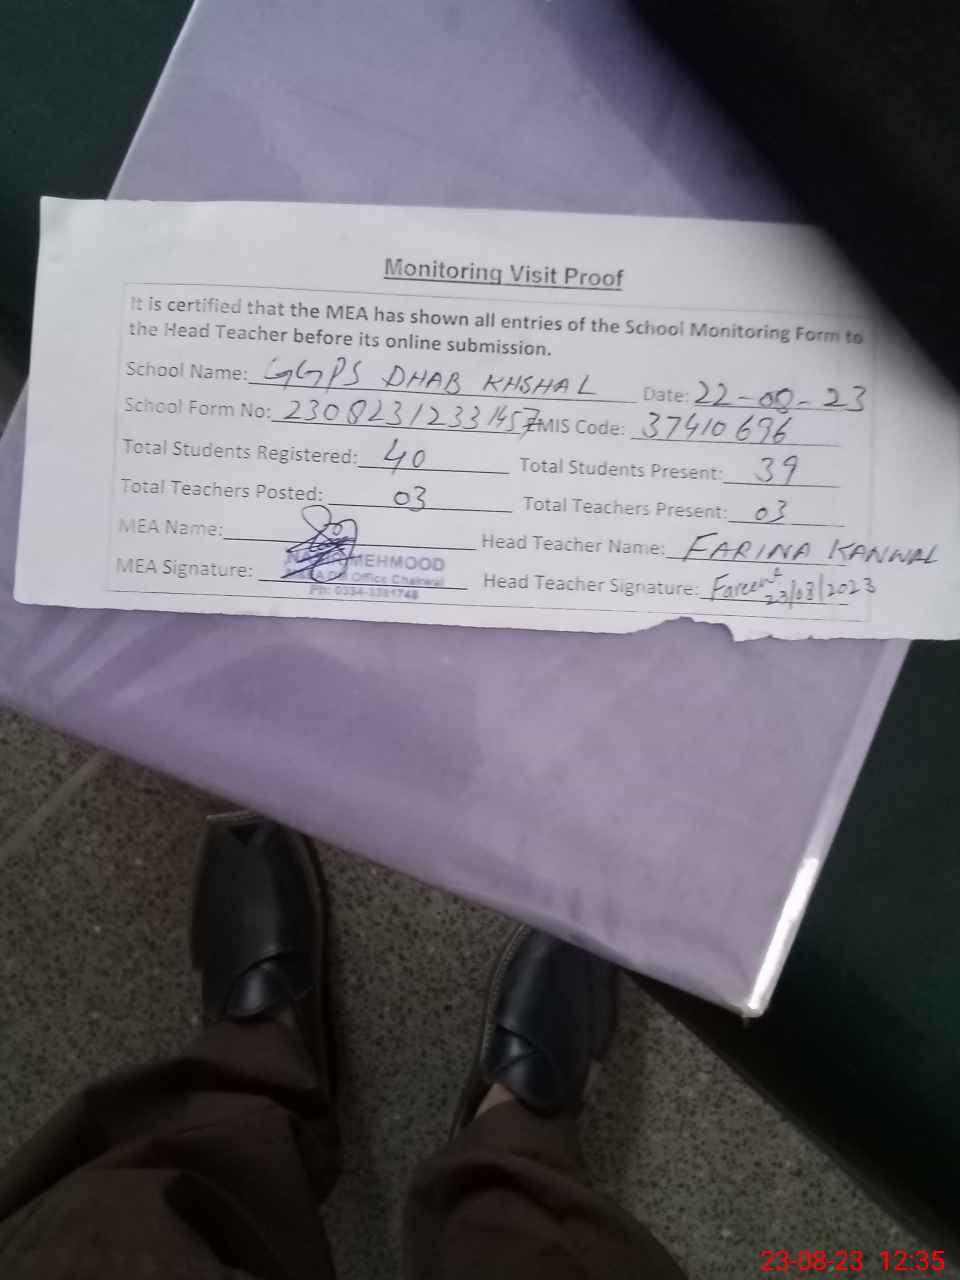 Monitoring Visit Proof
It is certified that the MEA has shown all entries of the School Monitoring Form to
the Head Teacher before its online submission.
School Name: GGPS DHAB KHSHAL Date: 22-08-23
School Form No: 23082312331457 EMIS Code: 37410696
Total Students Registered: 40 Total Students Present: 39
Total Teachers Posted: 03 Total Teachers Present: 03
MEA Name: Head Teacher Name: FARINA KANWAL
MEHMOOD
MEA Signature: Head Teacher Signature:
Office Chakwal 23/08/2023
23-08-23 12:35